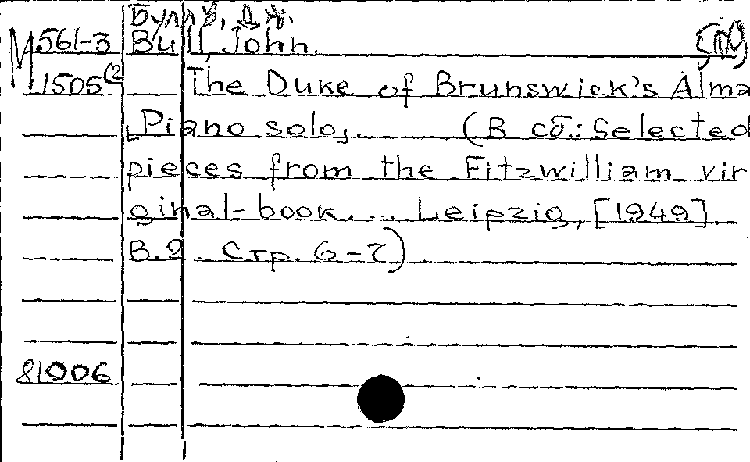 Булл, Дж.
М 561-3 Bull, John. (М)
11505(2 The Duke of Brunswick's Alma
[Piano solo] ... (В сб.: Selected
pieces from the Fitzwilliam vir
ginal-book... Leipzig, [1949]
В.2. Стр. 6-7)
81006